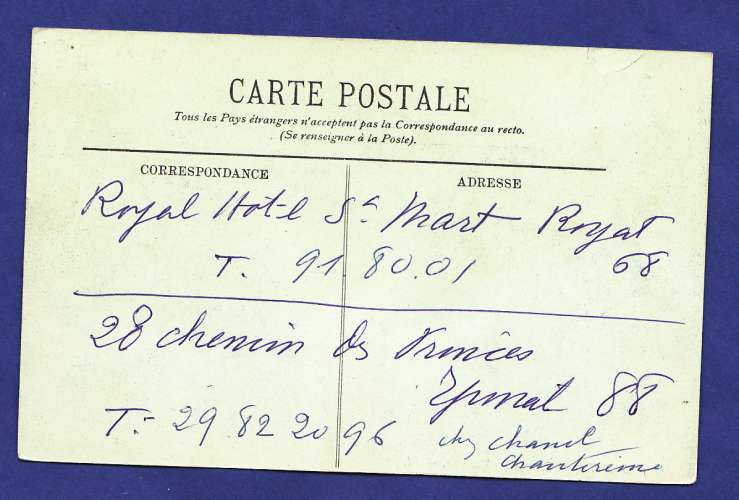 CARTE POSTALE
Tous les Pays étrangers n'acceptent pas la Correspondance au recto.
(Se renseigner à la Poste).
CORRESPONDANCE
ADRESSE
Royal Hôtel St Mart Royat
T. 91.80.01 68
28 chemin des Princes
Epinal 88
T.- 29.82 20 96
chez Chanel
Chantereine